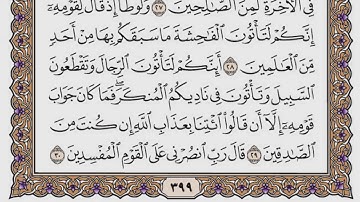 فِي الْآخِرَةِ لَمِنَ الصَّالِحِينَ ٢٧ وَلُوطًا إِذْ قَالَ لِقَوْمِهِ
إِنَّكُمْ لَتَأْتُونَ الْفَاحِشَةَ مَا سَبَقَكُم بِهَا مِنْ أَحَدٍ
مِّنَ الْعَالَمِينَ ٢٨ أَئِنَّكُمْ لَتَأْتُونَ الرِّجَالَ وَتَقْطَعُونَ
السَّبِيلَ وَتَأْتُونَ فِي نَادِيكُمُ الْمُنكَرَ ۖ فَمَا كَانَ جَوَابَ
قَوْمِهِ إِلَّا أَن قَالُوا ائْتِنَا بِعَذَابِ اللَّهِ إِن كُنتَ مِنَ
الصَّادِقِينَ ٢٩ قَالَ رَبِّ انصُرْنِي عَلَى الْقَوْمِ الْمُفْسِدِينَ ٣٠
٣٩٩